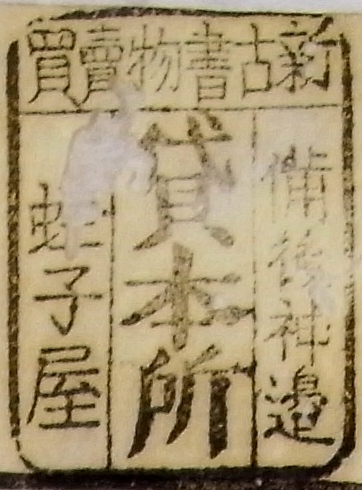 新古書物賣買
備後神邊
貸本所
蛭子屋